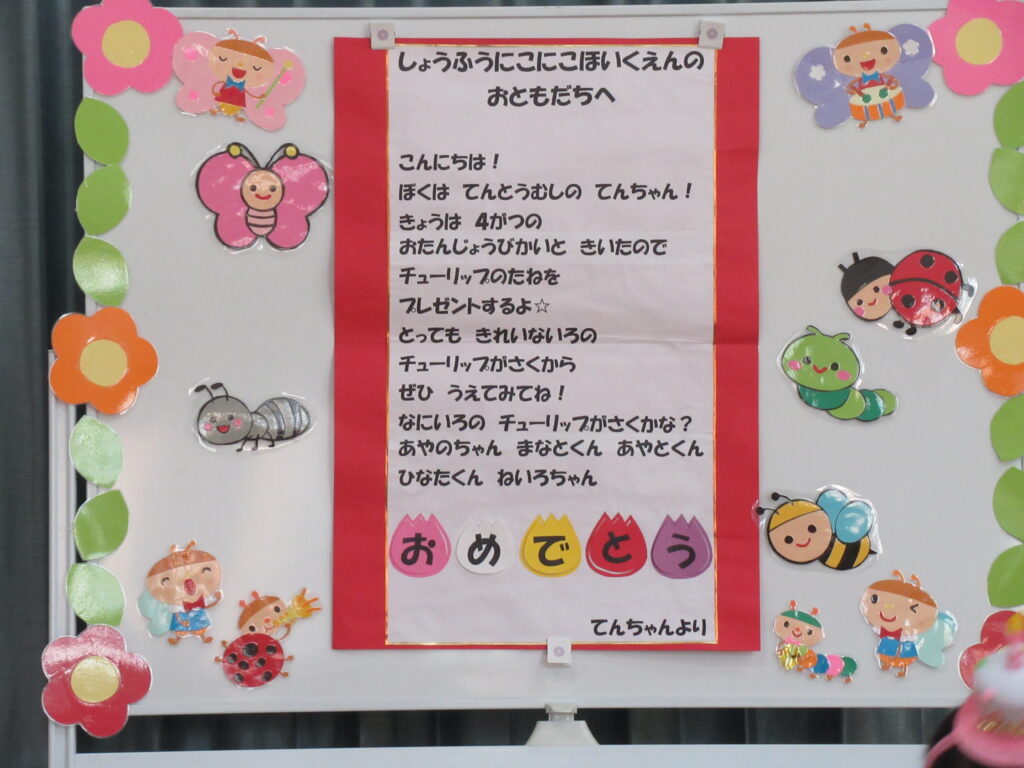 しょうふうにこにこほいくえんの
おともだちへ
こんにちは！
ぼくは てんとうむしの てんちゃん！
きょうは 4がつの
おたんじょうびかいと きいたので
チューリップのたねを
プレゼントするよ☆
とっても きれいないろの
チューリップがさくから
ぜひ うえてみてね！
なにいろの チューリップがさくかな？
あやのちゃん まなとくん あやとくん
ひなたくん ねいろちゃん
おめでとう
てんちゃんより